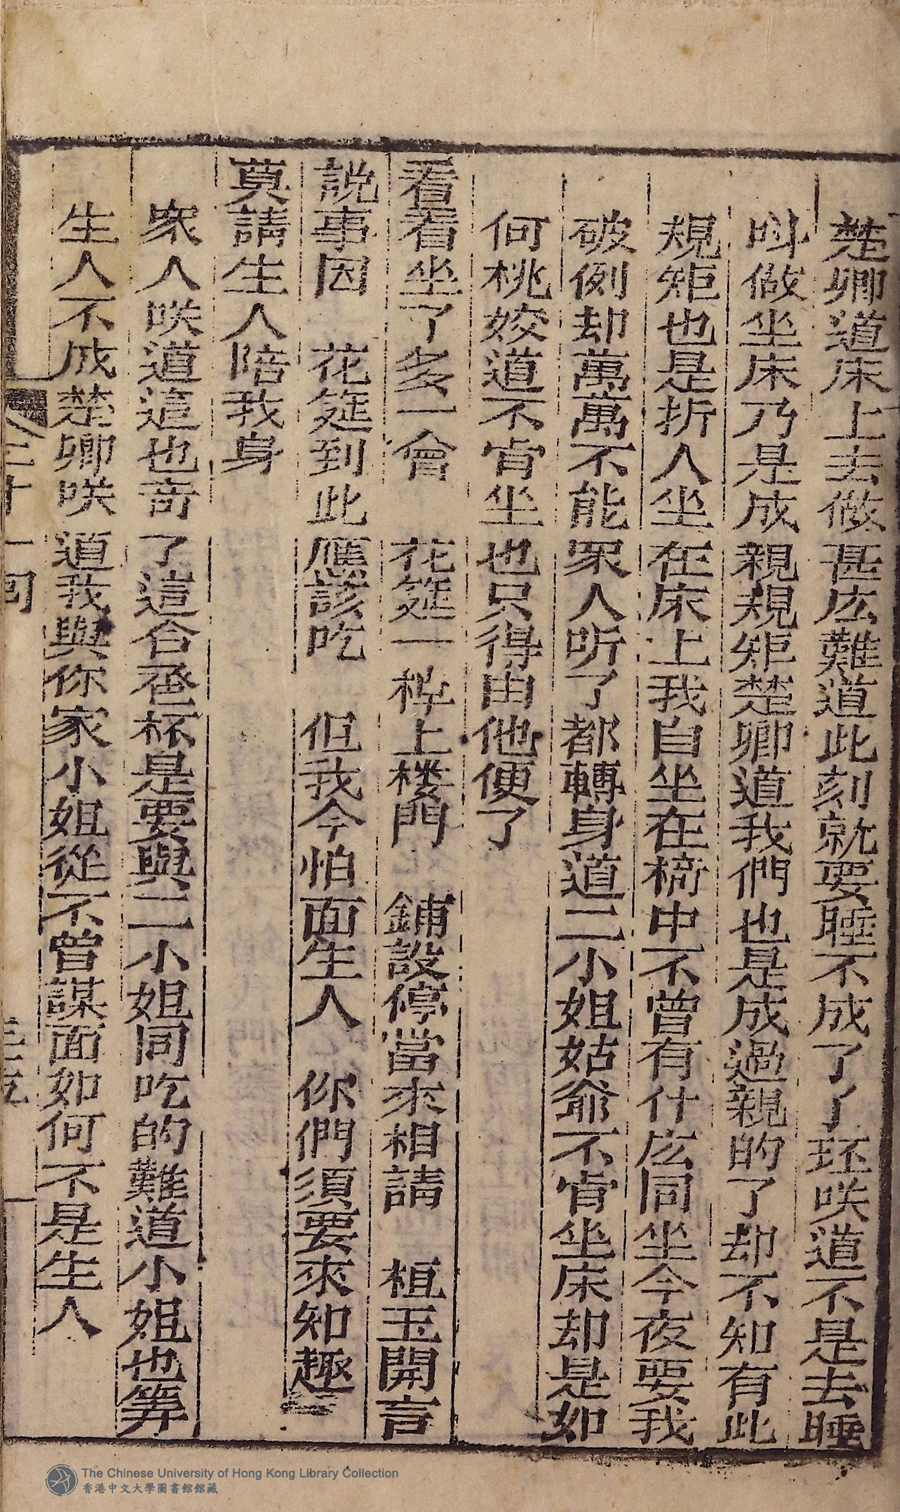 楚卿道床上去做甚庅難道此刻就要睡不成了了环咲道不是去睡
叫做坐床乃是成親規矩楚卿道我們也是成過親的了却不知有此
規矩也是折人坐在床上我自坐在椅中不曾有什庅同坐今夜要我
破例却萬萬不能眾人听了都轉身道二小姐姑爺不肯坐床却是如
何桃姣道不肯坐也只得由他便了
看看坐了多一會 花筵一桌上楼門 鋪設停當來相請 植玉開言
説事因 花筵到此應該吃 但我今怕面生人 你們須要來知趣
莫請生人陪我身
眾人咲道這也奇了這合卺杯是要與二小姐同吃的難道小姐也算
生人不成楚卿咲道我與你家小姐從不曾謀面如何不是生人
三十一回
The Chinese University of Hong Kong Library Collection
香港中文大學圖書館館藏